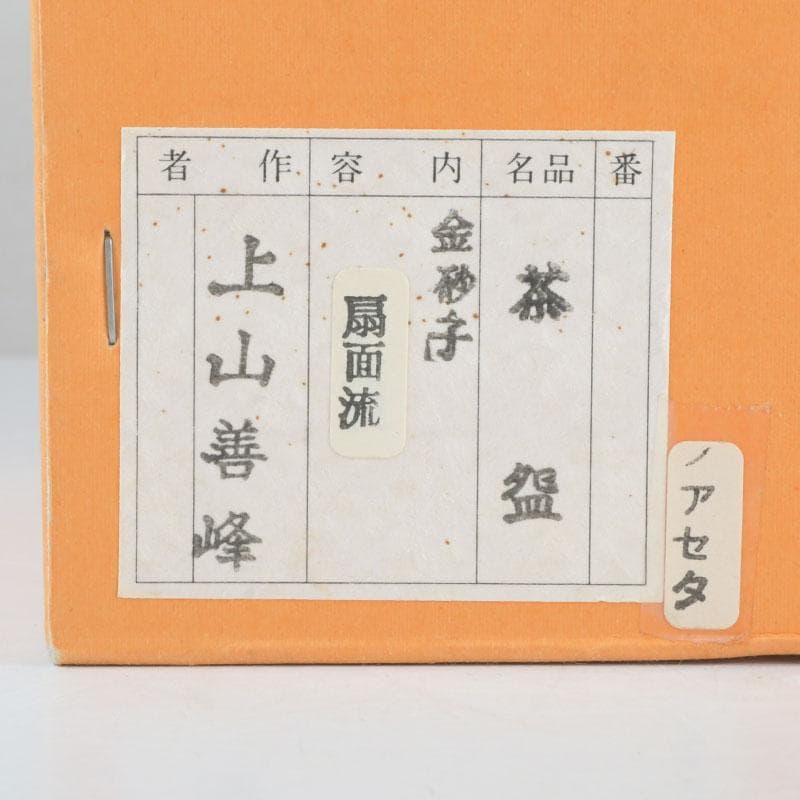 番
品名
内容
作者
茶盌
金砂子
扇面流
上山善峰
ノアセタ